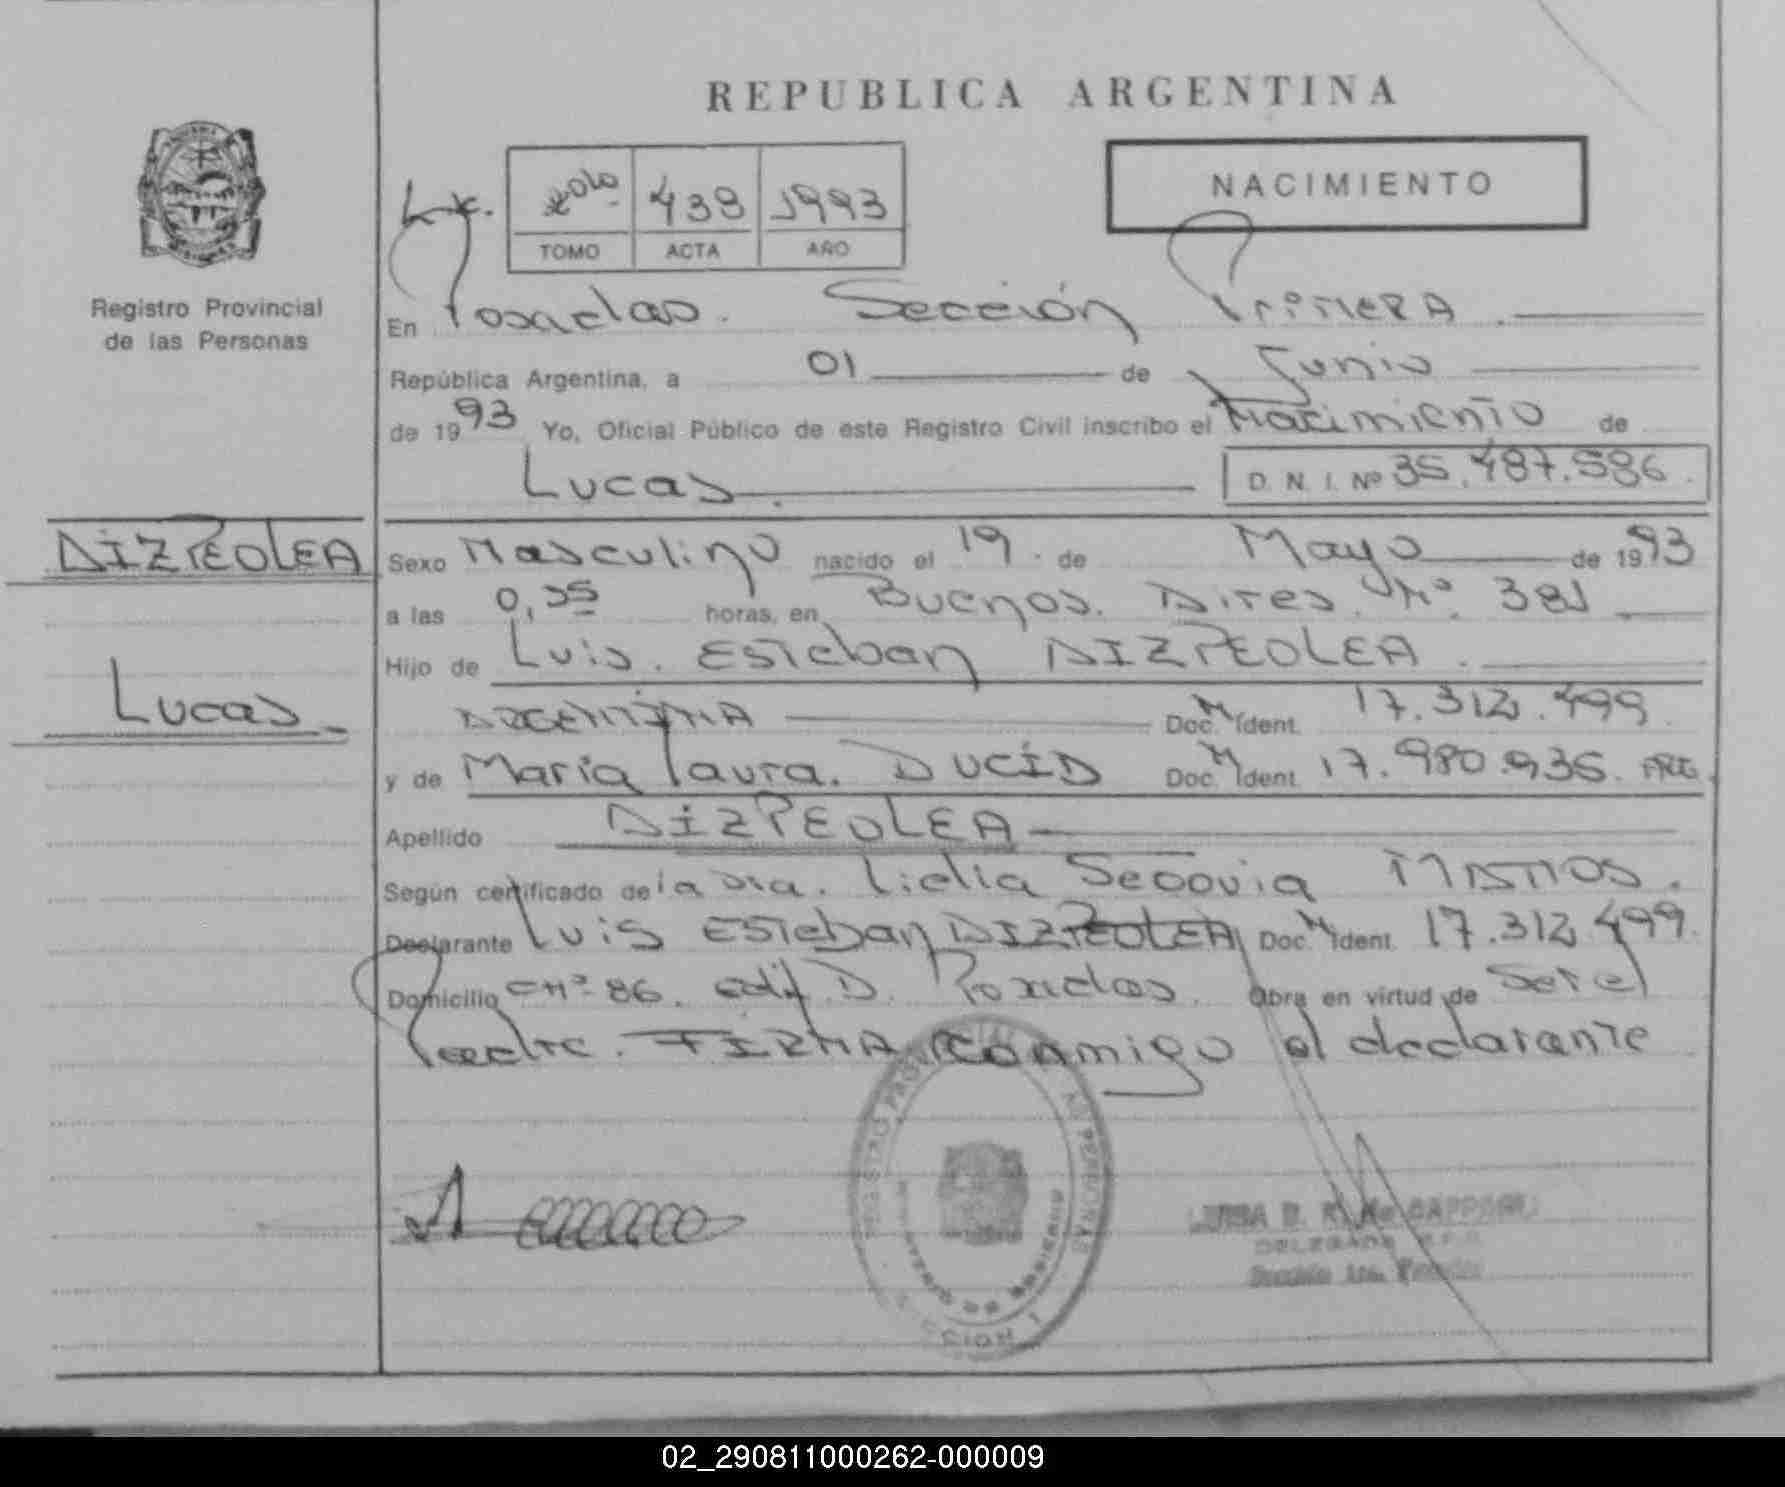 REPUBLICA ARGENTINA
NACIMIENTO
439 1993
TOMO ACTA AÑO
Registro Provincial
de las Personas
En Posadas. Sección Primera.
República Argentina, a 01 de Junio
de 1993 Yo, Oficial Público de este Registro Civil inscribo el Nacimiento de
Lucas. D. N. I. Nº 35.487.586.
DIZPEOLEA
Sexo Masculino nacido el 19 de Mayo de 1993
a las 0,35 horas, en Buenos Aires Nº 381
Hijo de Luis Esteban DIZPEOLEA.
Lucas
ARGENTINA Doc. M Ident. 17.312.499
y de Maria Laura. DUCID Doc. M Ident. 17.980.935. ARG.
Apellido DIZPEOLEA
Según certificado de la Dra. Lidia Segovia
Declarante Luis Esteban DIZPEOLEA Doc. M Ident. 17.312.499.
Domicilio Nº 86. edif D. Posadas. Obra en virtud de Ser el
Padre. FIRMA conmigo el declarante
REGISTRO PROVINCIAL PERSONAS
DELEGADA
02_290811000262-000009